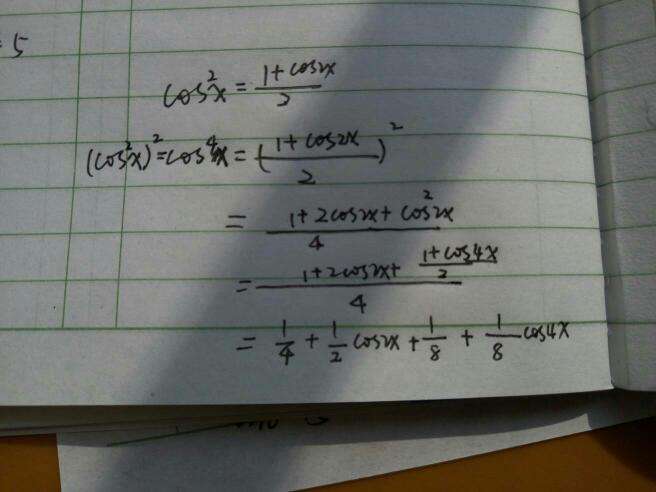 5
cos²x = (1+cos2x)/2
(cos²x)² = cos⁴x = ((1+cos2x)/2)²
= (1+2cos2x+cos²2x)/4
= (1+2cos2x+(1+cos4x)/2)/4
= 1/4 + 1/2 cos2x + 1/8 + 1/8 cos4x